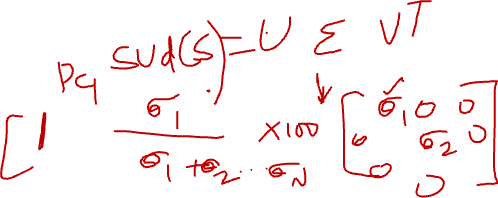 PC1 SVd(S) = U Σ V^T
[ 1 σ1 / σ1 + σ2 ... σN × 100 [ σ1 0 0
0 σ2 0
0 0 ]